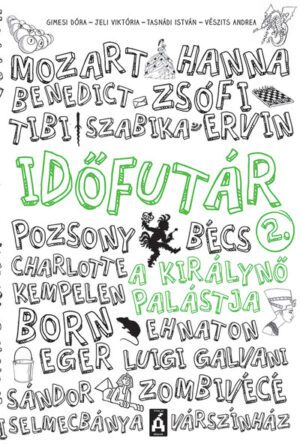 GIMESI DÓRA – JELI VIKTÓRIA – TASNÁDI ISTVÁN – VÉSZITS ANDREA
MOZART HANNA
BENEDICT ZSÓFI
TIBI SZABIKA ERVIN
IDŐFUTÁR
POZSONY BÉCS 2.
CHARLOTTE A KIRÁLYNŐ
KEMPELEN PALÁSTJA
BORN EHNATON
EGER LUIGI GALVANI
SÁNDOR ZOMBIVÉCÉ
SELMECBÁNYA VÁRSZÍNHÁZ